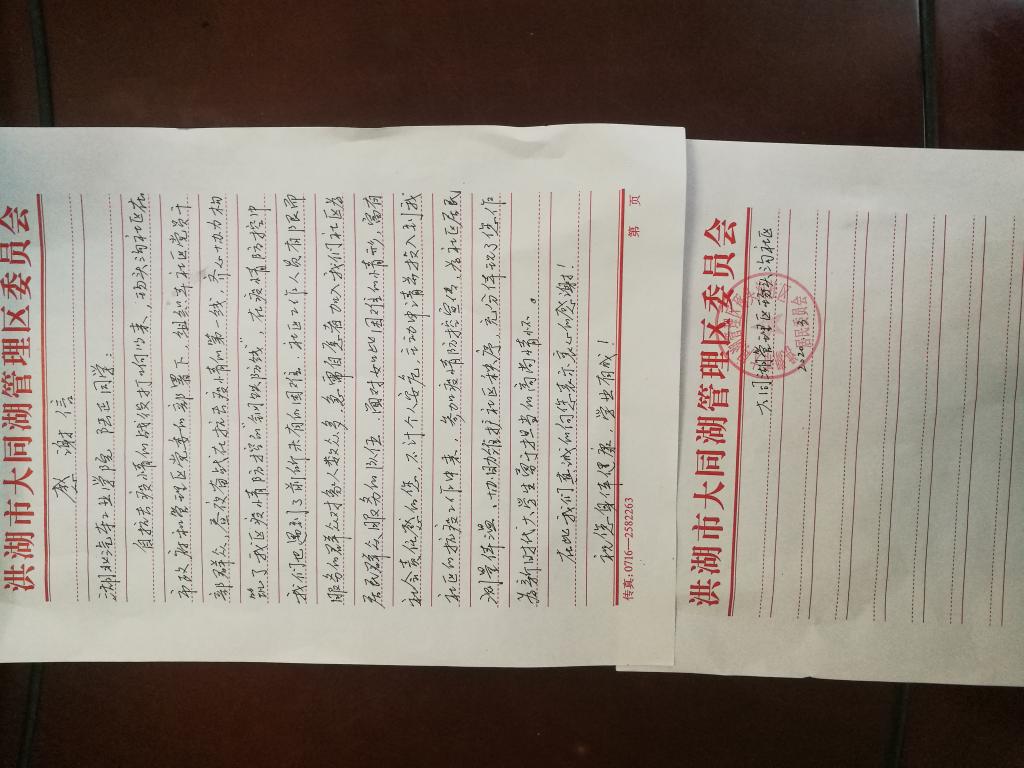 洪湖市大同湖管理区委员会
感谢信
湖北汽车工业学院 陆正同学:
自抗击疫情的战役打响以来,琢头沟社区在
市政府和管理区党委的部署下,组织本社区党员干
部群众,昼夜奋战在抗击疫情的第一线,齐心协力构
筑了我区疫情防控的“钢铁防线”,在疫情防控中
我们也遇到了前所未有的困难,社区工作人员有限而
服务的群众对象人数众多,急需自愿者加入我们社区为
居民群众服务的队伍。面对如此困难的情形,富有
社会责任感的您,不计个人安危,主动申请并投入到我
社区的抗疫工作中来,参加疫情防控宣传,为社区居民
测量体温、协助维护社区秩序,充分体现了您作
为新时代大学生勇于担当的高尚情怀。
在此我们真诚的向您表示衷心的感谢!
祝您身体健康,学业有成!
传真:0716—2582263 第 页
洪湖市大同湖管理区委员会
大同湖管理区琢头沟社区
居民委员会
2020